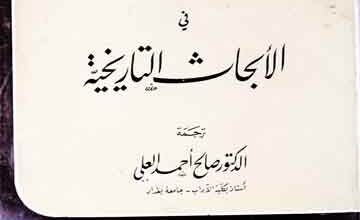 في
الأبحاث التاريخية
ترجمة
الدكتور صالح أحمد العلي
أستاذ بكلية الآداب - جامعة بغداد